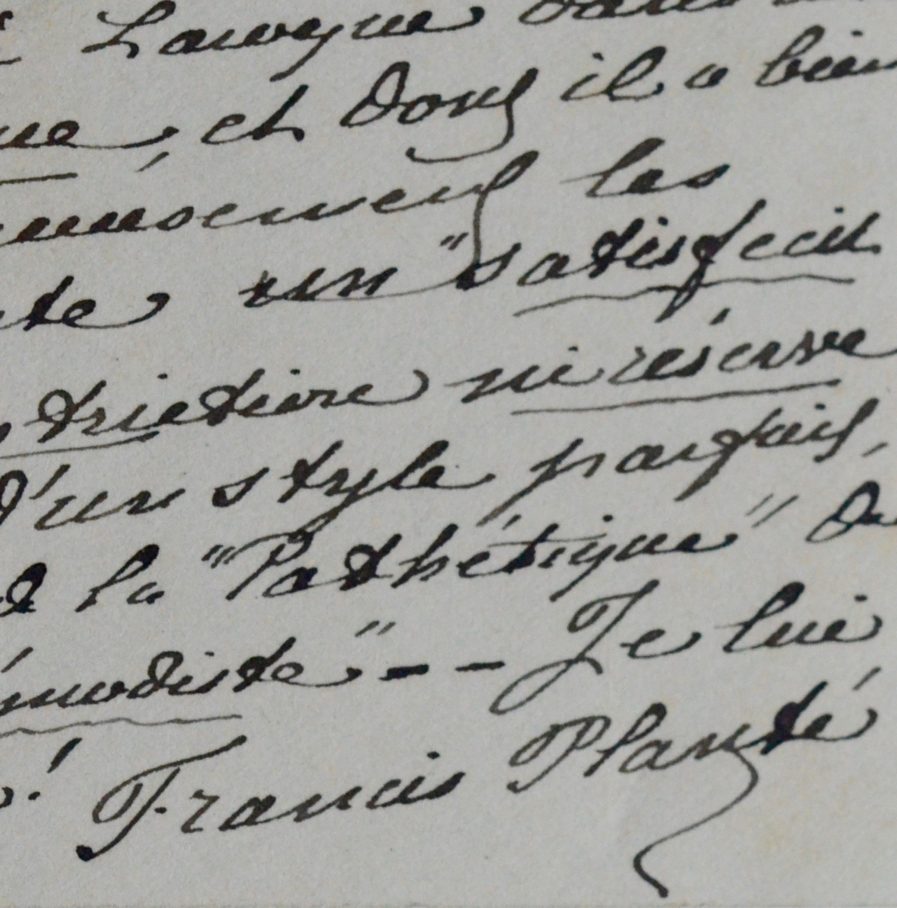 Lavergne dans
, et dont il a bien
les
te un "satisfecit
, trictive ni réserve
d'un style parfait,
& la "Pathétique" de
modiste" - - Je lui
! Francis Planté